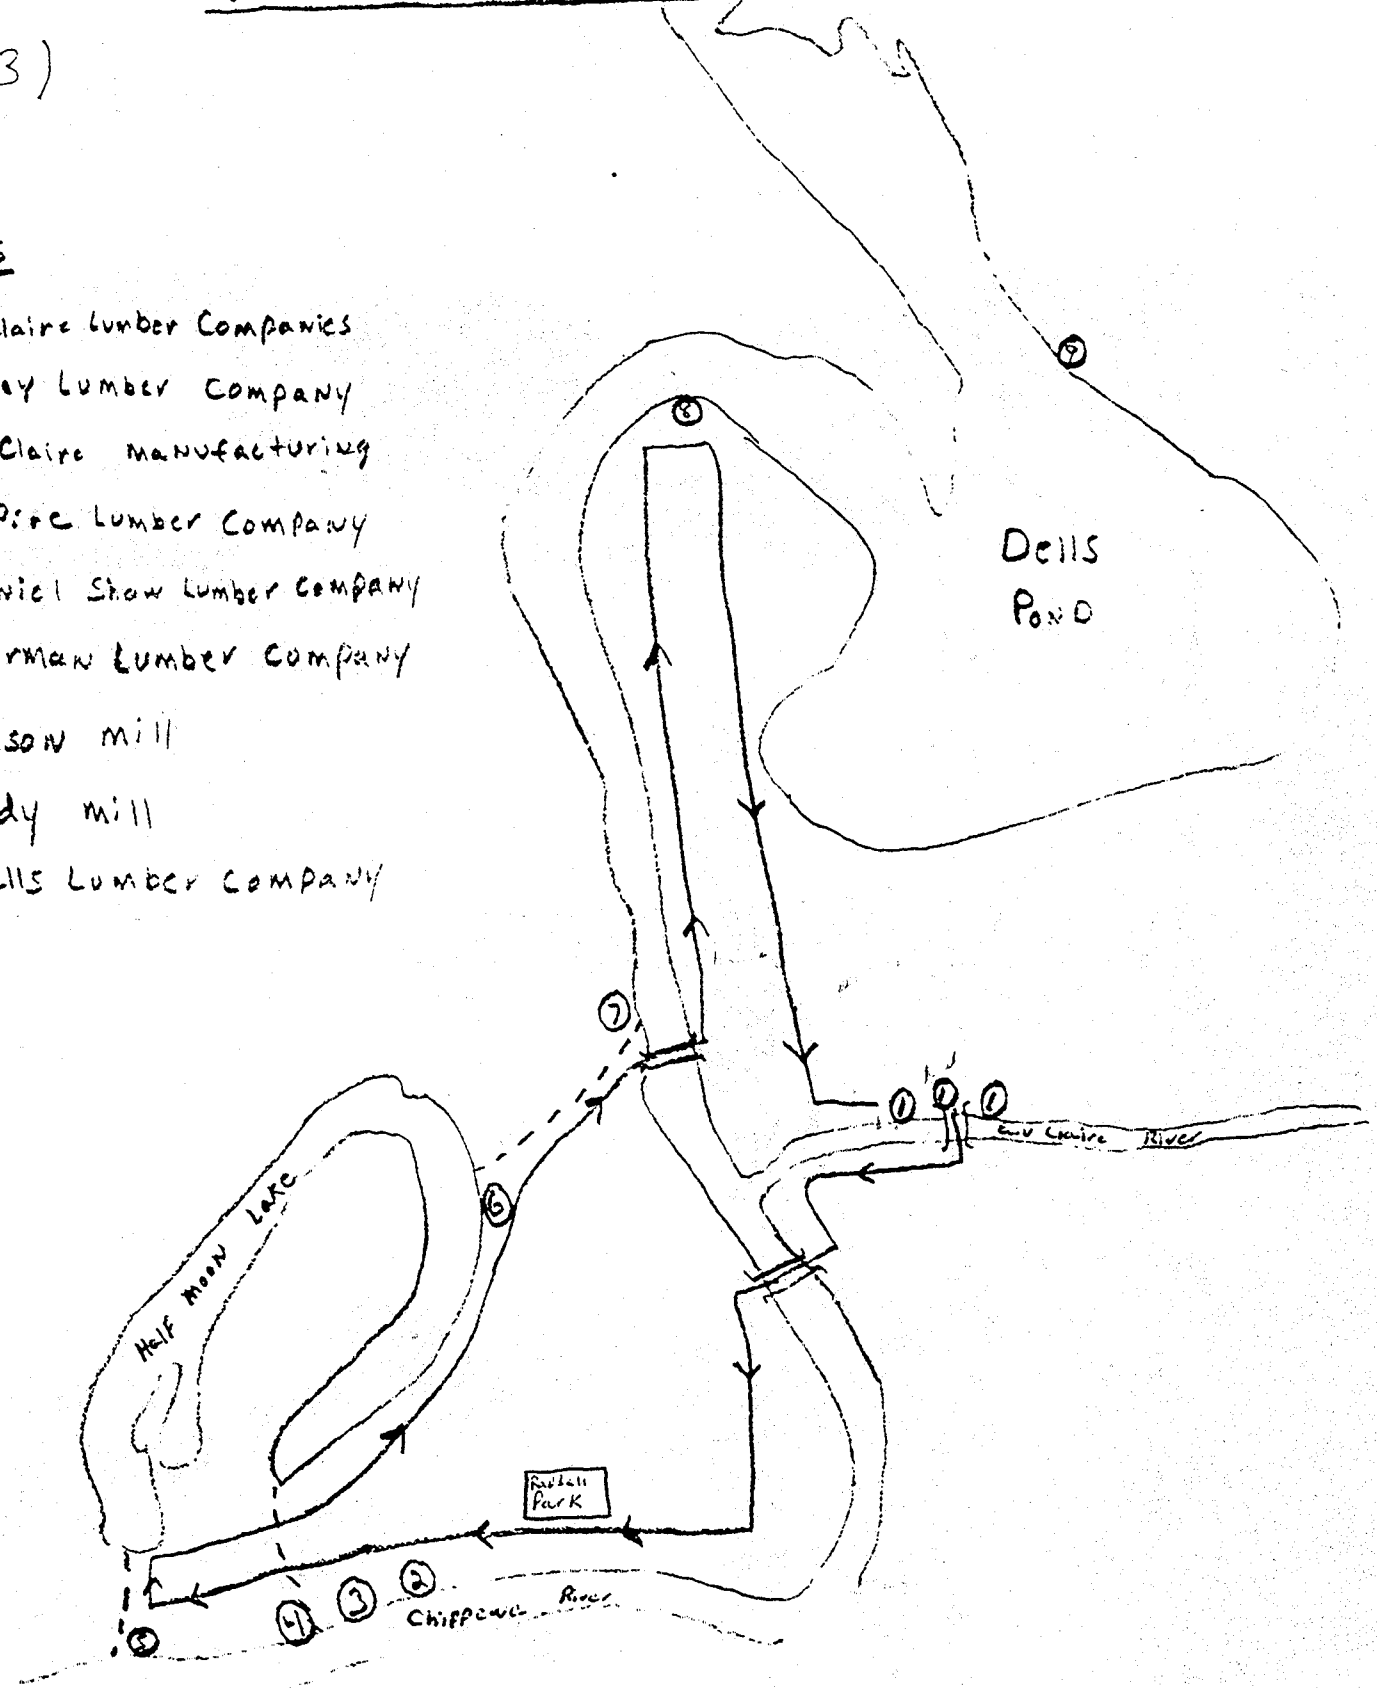 3)
Claire Lumber Companies
ey Lumber Company
Claire manufacturing
Pire Lumber Company
niel Shaw Lumber Company
rman Lumber Company
son mill
dy mill
lls Lumber Company
9
8
Dells
Pond
7
1 1 1
Claire River
6
Half Moon Lake
Park
2
3
4
5
Chippewa River